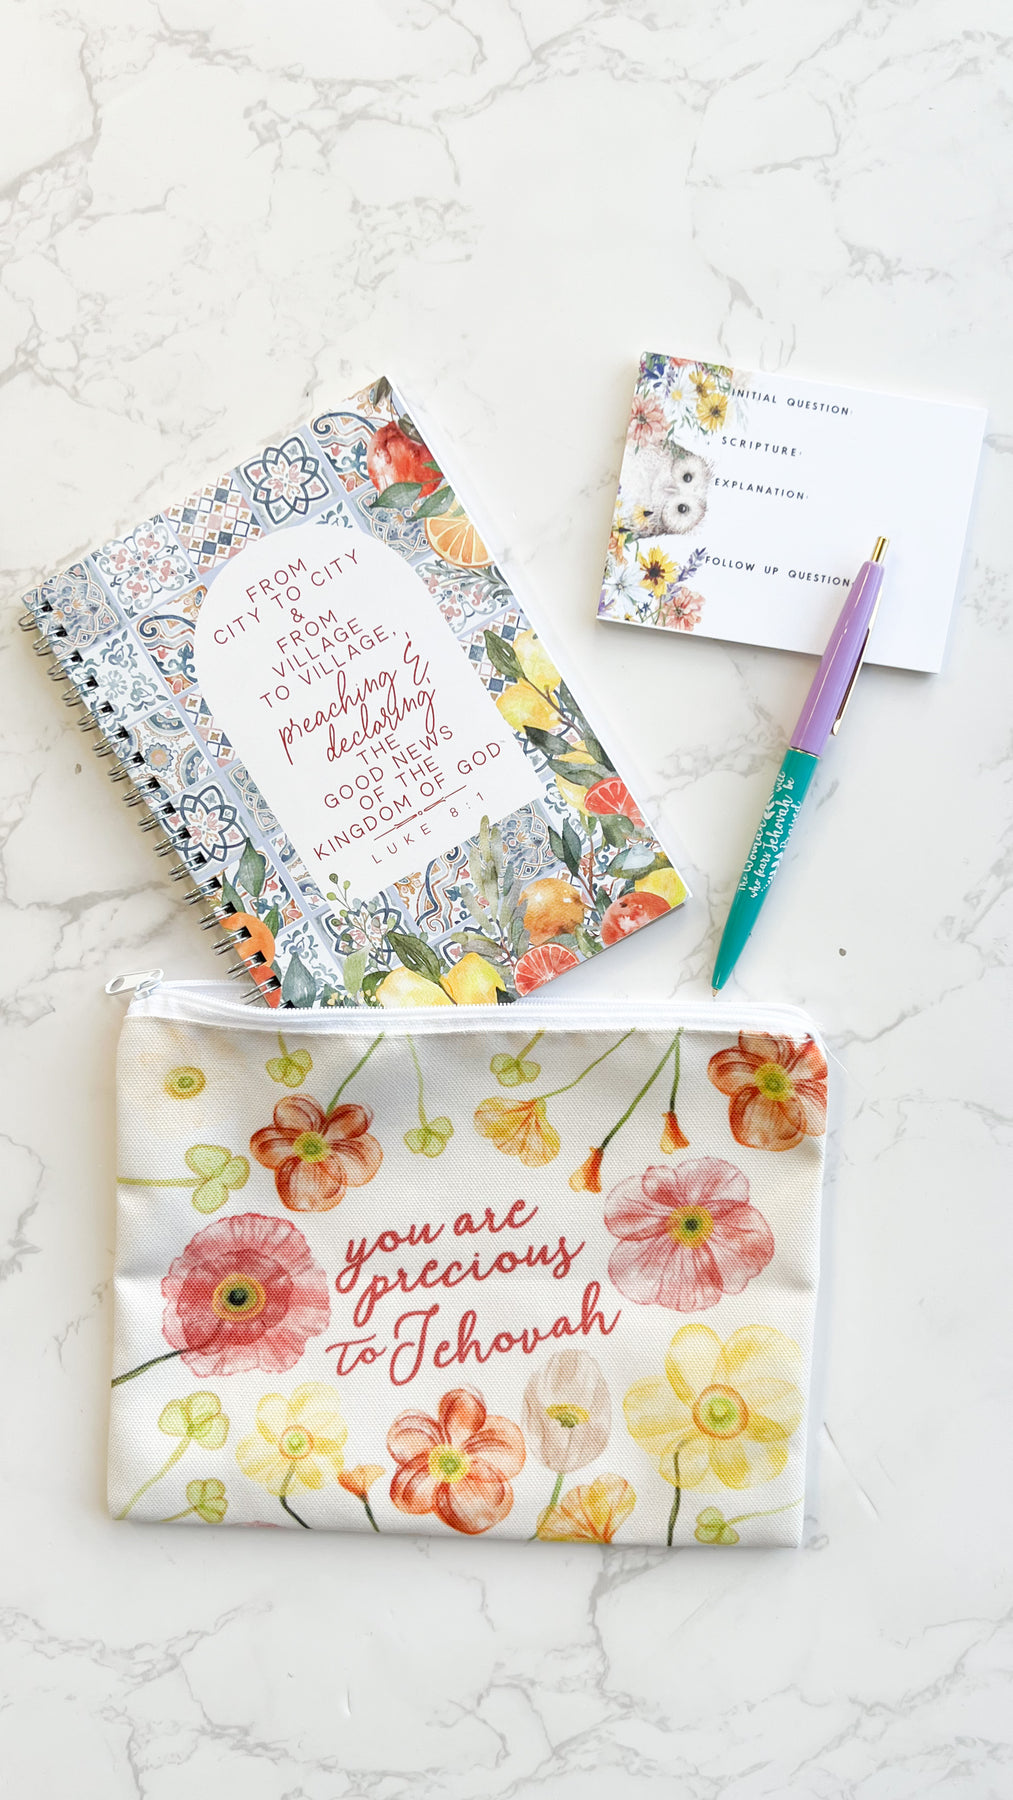 FROM
CITY TO CITY
&
FROM
VILLAGE
TO VILLAGE,
preaching &
declaring
THE
GOOD NEWS
OF THE
KINGDOM OF GOD
LUKE 8:1
INITIAL QUESTION:
SCRIPTURE:
EXPLANATION:
FOLLOW UP QUESTION:
The Woman
who fears Jehovah
will be
Praised
you are
precious
to Jehovah